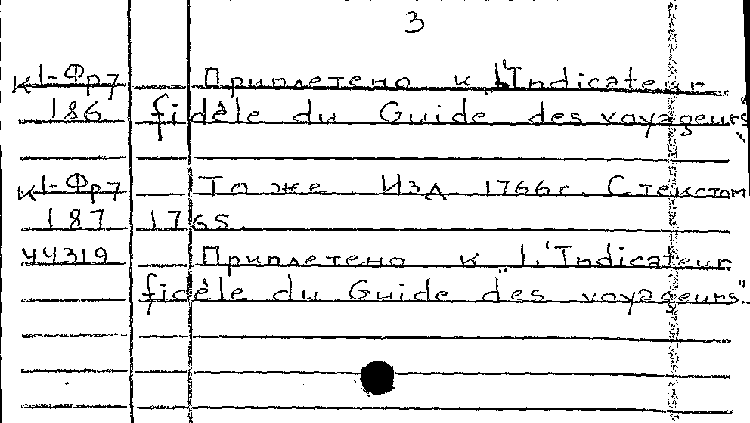 3
К1-Фр7 Приплетено к "L'Indicateur
186 fidèle du Guide des voyageurs"
К1-Фр7 То же Изд 1766г. С текстом
187 1765.
44319 Приплетено к "L'Indicateur
fidèle du Guide des voyageurs".